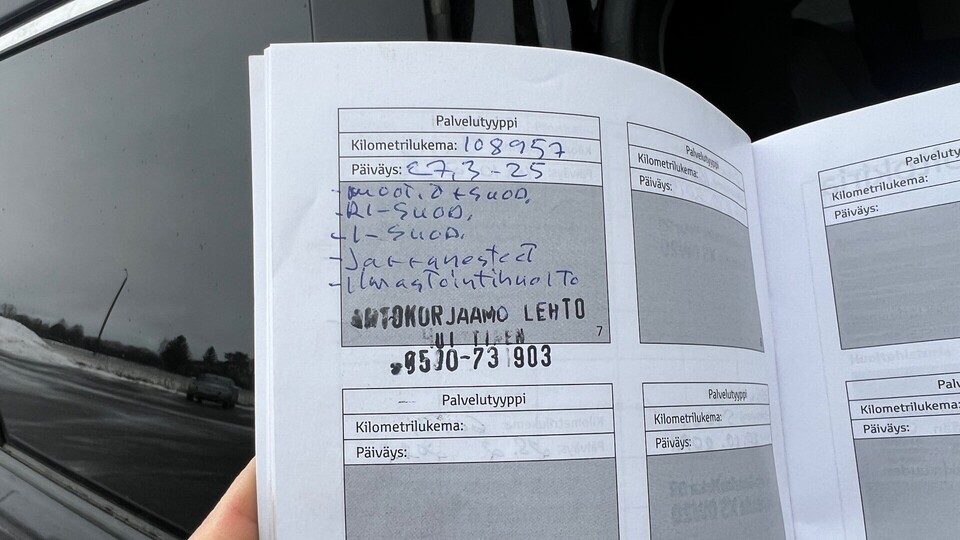 Palvelutyyppi
Kilometrilukema: 108957
Päiväys: 27,3-25
- moot.ö+suod,
- RI-suod,
- I-suod.
- Jarrunesteet
- Ilmastointihuolto
AUTOKORJAAMO LEHTO
0500-73 903
7
Palvelutyyppi
Kilometrilukema:
Päiväys:
Palvelutyyppi
Kilometrilukema:
Päiväys:
Palvelutyyppi
Kilometrilukema:
Päiväys:
Kilometrilukema:
Päiväys:
Kilometrilukema:
Päiväys: